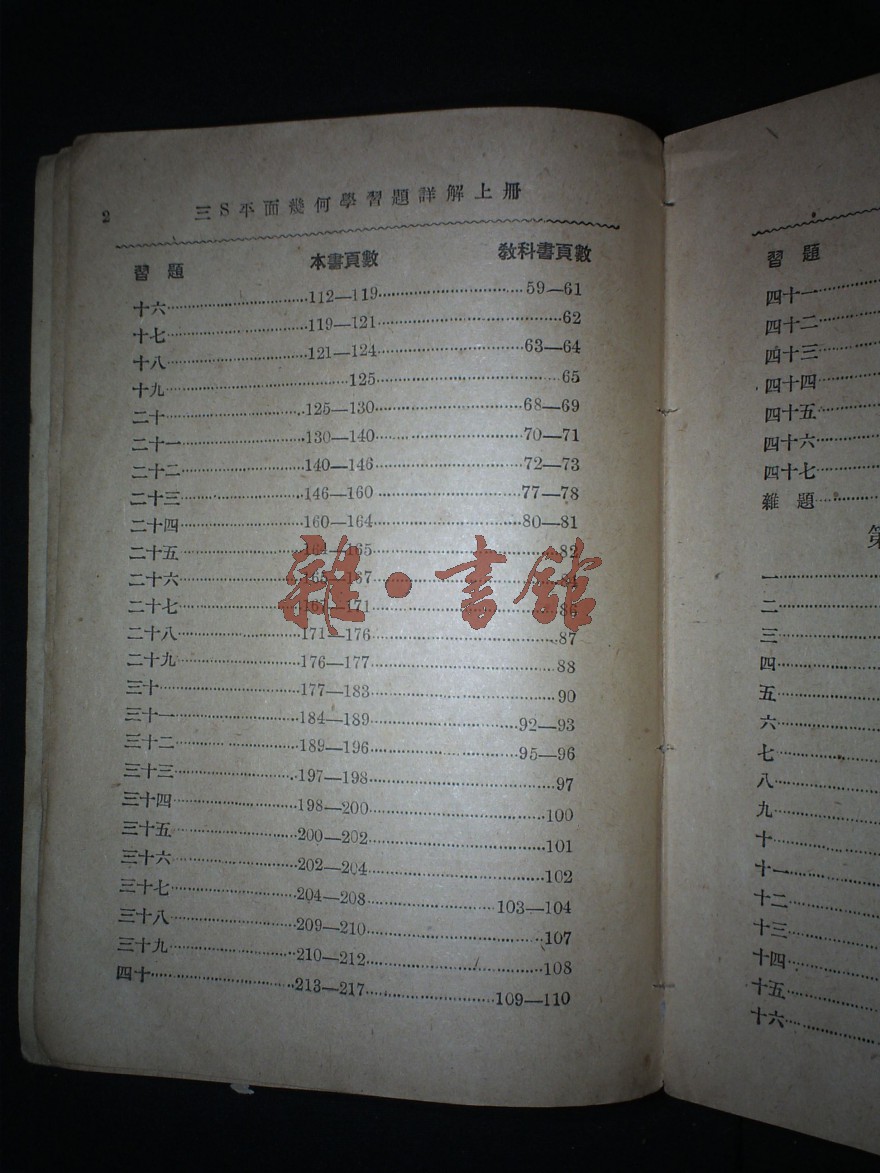 2 三S平面幾何學習題詳解上冊
習題 本書頁數 教科書頁數
十六 112—119 59—61
十七 119—121 62
十八 121—124 63—64
十九 125 65
二十 125—130 68—69
二十一 130—140 70—71
二十二 140—146 72—73
二十三 146—160 77—78
二十四 160—164 80—81
二十五 164—165 82
二十六 165—167 84
二十七 167—171 86
二十八 171—176 87
二十九 176—177 88
三十 177—183 90
三十一 184—189 92—93
三十二 189—196 95—96
三十三 197—198 97
三十四 198—200 100
三十五 200—202 101
三十六 202—204 102
三十七 204—208 103—104
三十八 209—210 107
三十九 210—212 108
四十 213—217 109—110
雜·書館
習題
四十一
四十二
四十三
四十四
四十五
四十六
四十七
雜題
第
一
二
三
四
五
六
七
八
九
十
十一
十二
十三
十四
十五
十六